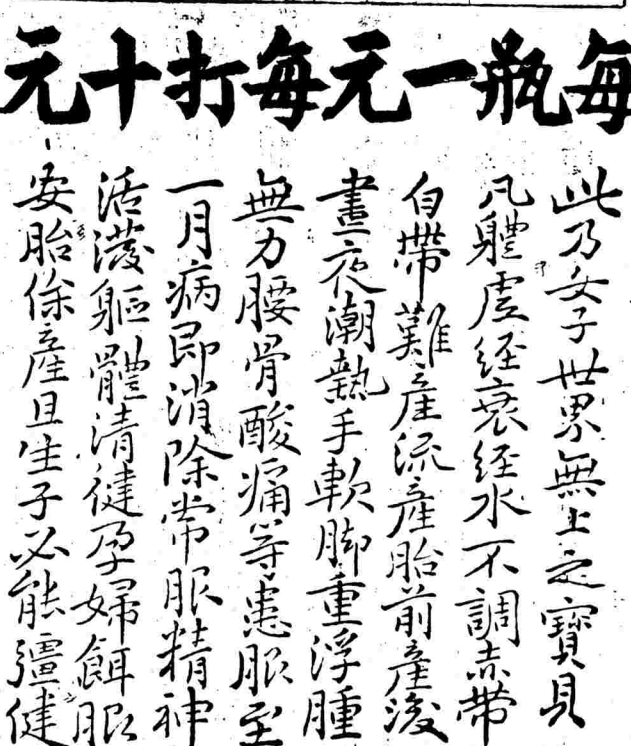 每瓶一元每打十元
此乃女子世界無上之寶貝
凡體虛經衰經水不調赤帶
白帶難產流產胎前產後
晝夜潮熱手軟脚重浮腫
無力腰骨酸痛等患服至
一月病即消除常服精神
活潑軀體清健孕婦餌服
安胎保產且生子必能彊健